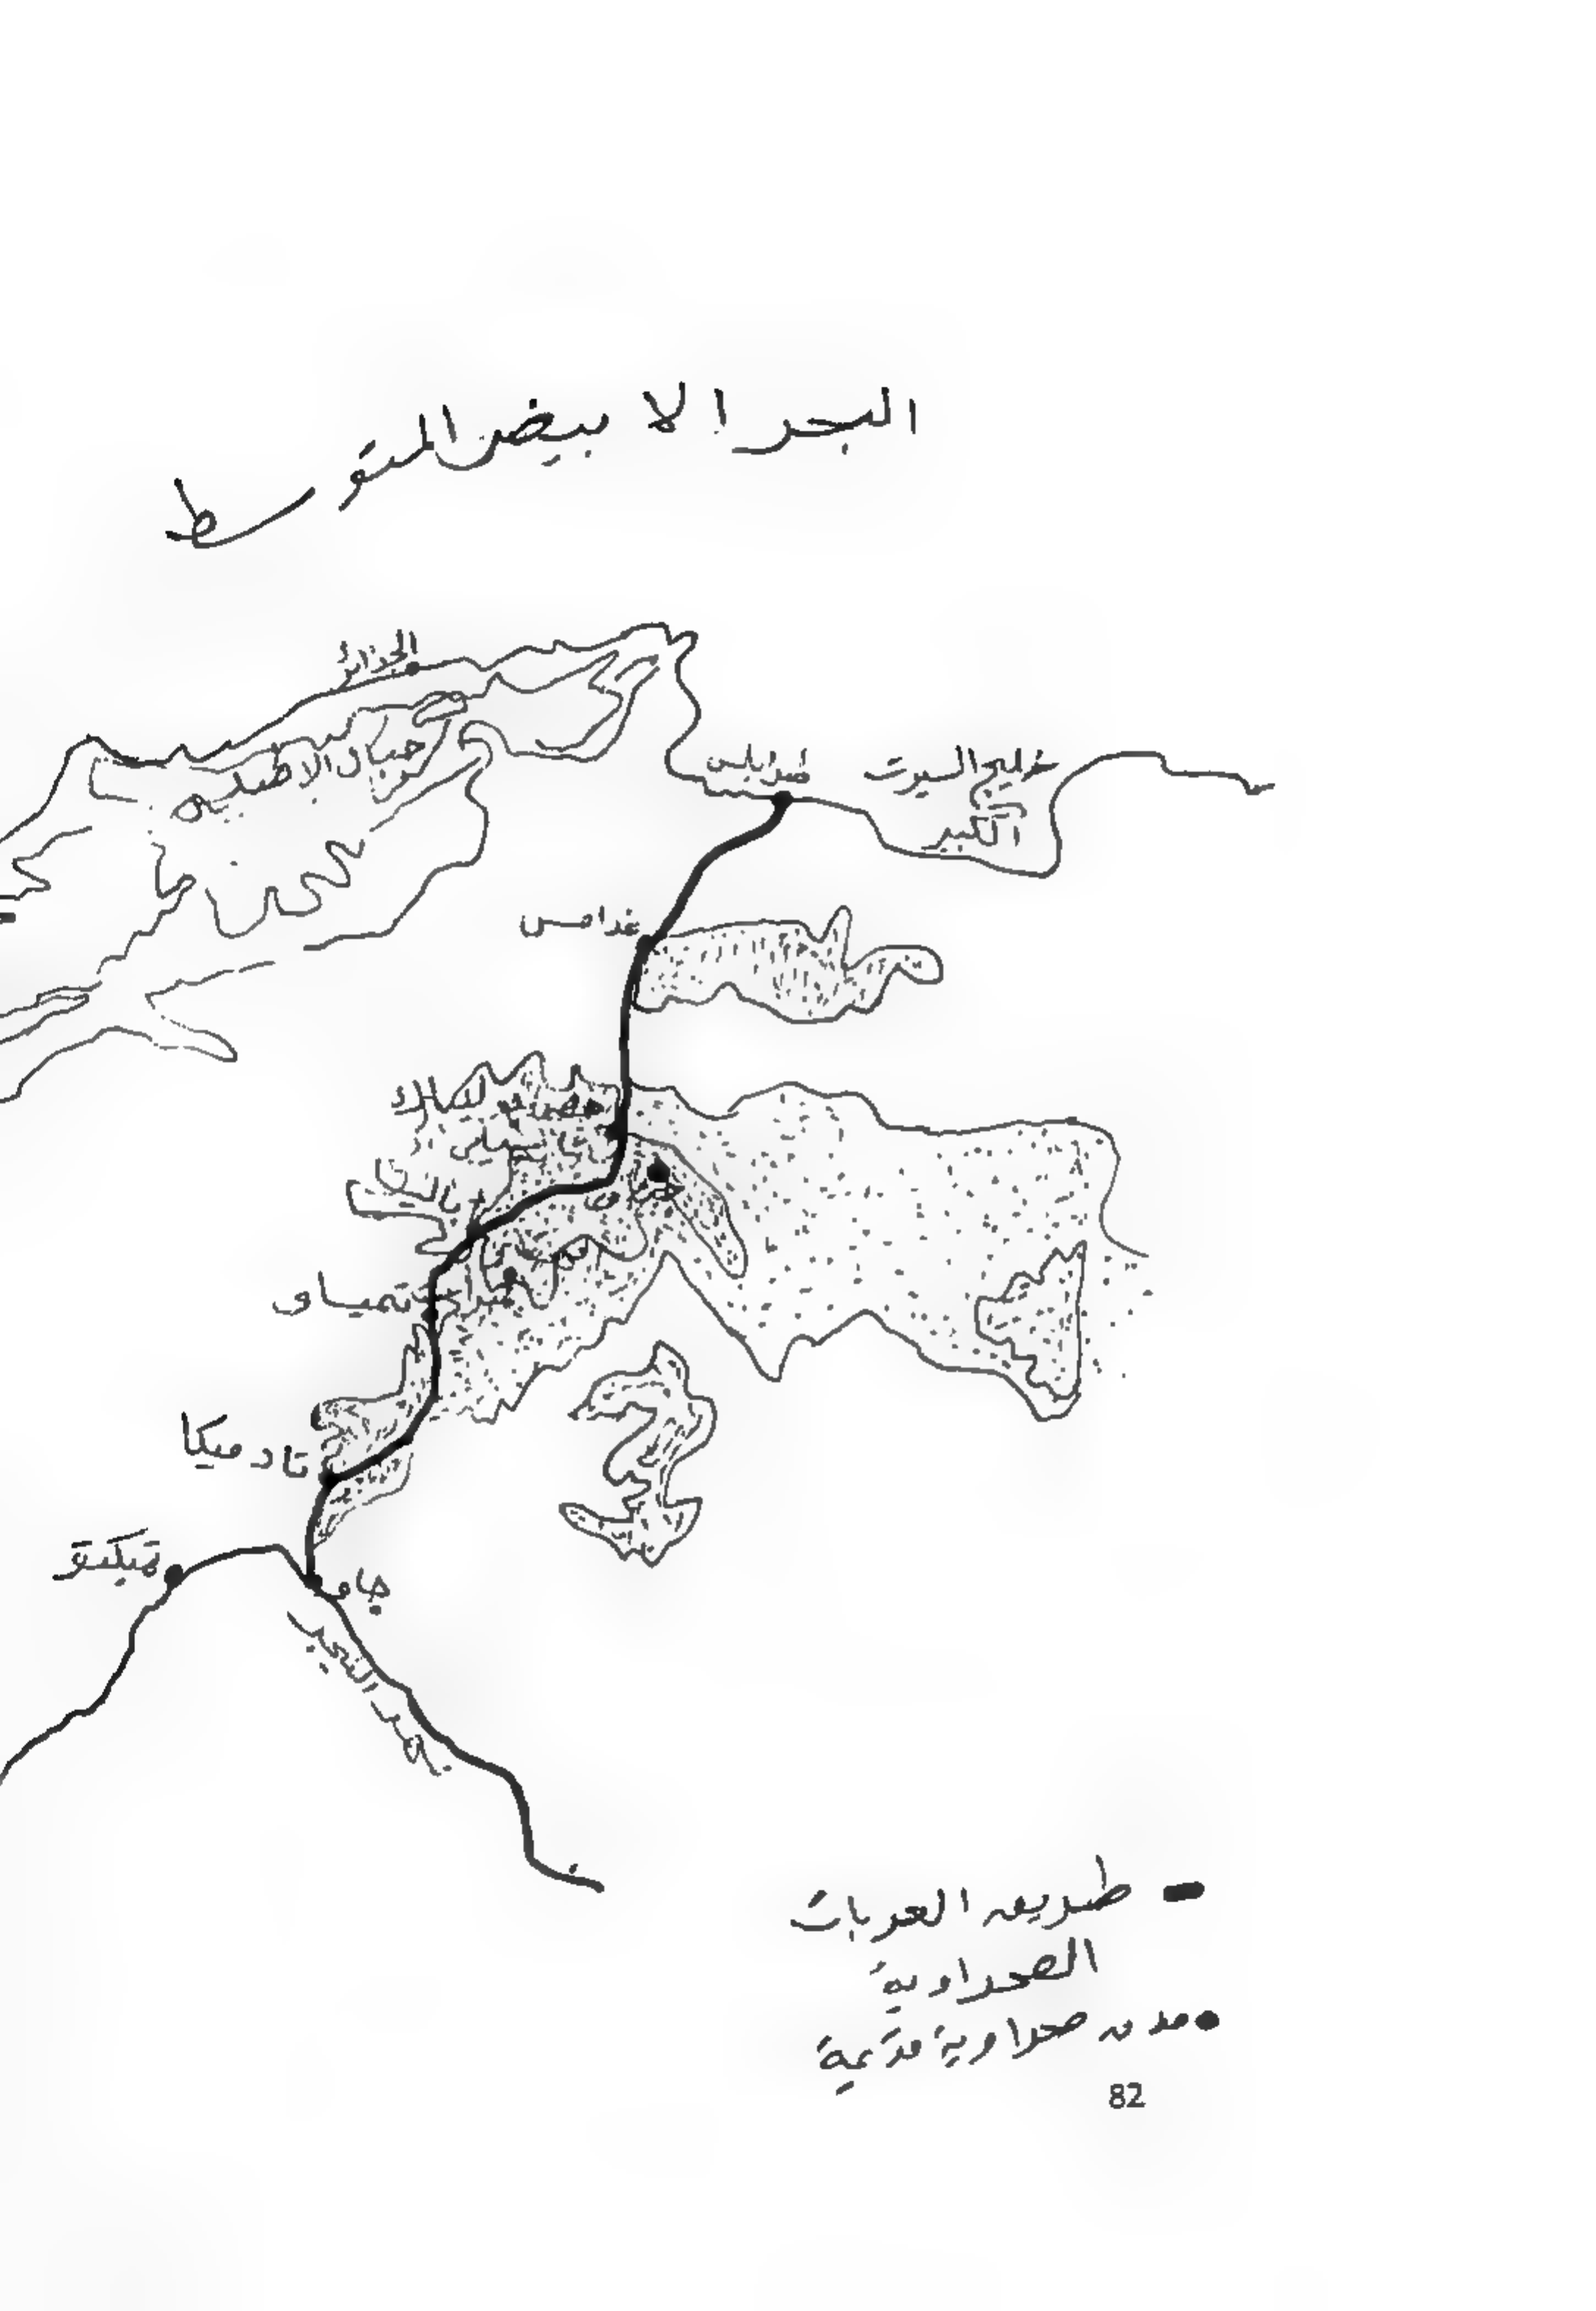 البحر الابيض المتوسط
الجزائر
جبال الاطلس
طرابلس
خليج السيرت
الكبير
غدامس
هضبات
تاسيلي
جرا
تمياو
تاد ميكا
تمبكتو
جاو
نهر النيجر
طريق العربات
الصحراوية
مدن صحراوية قديمة
82